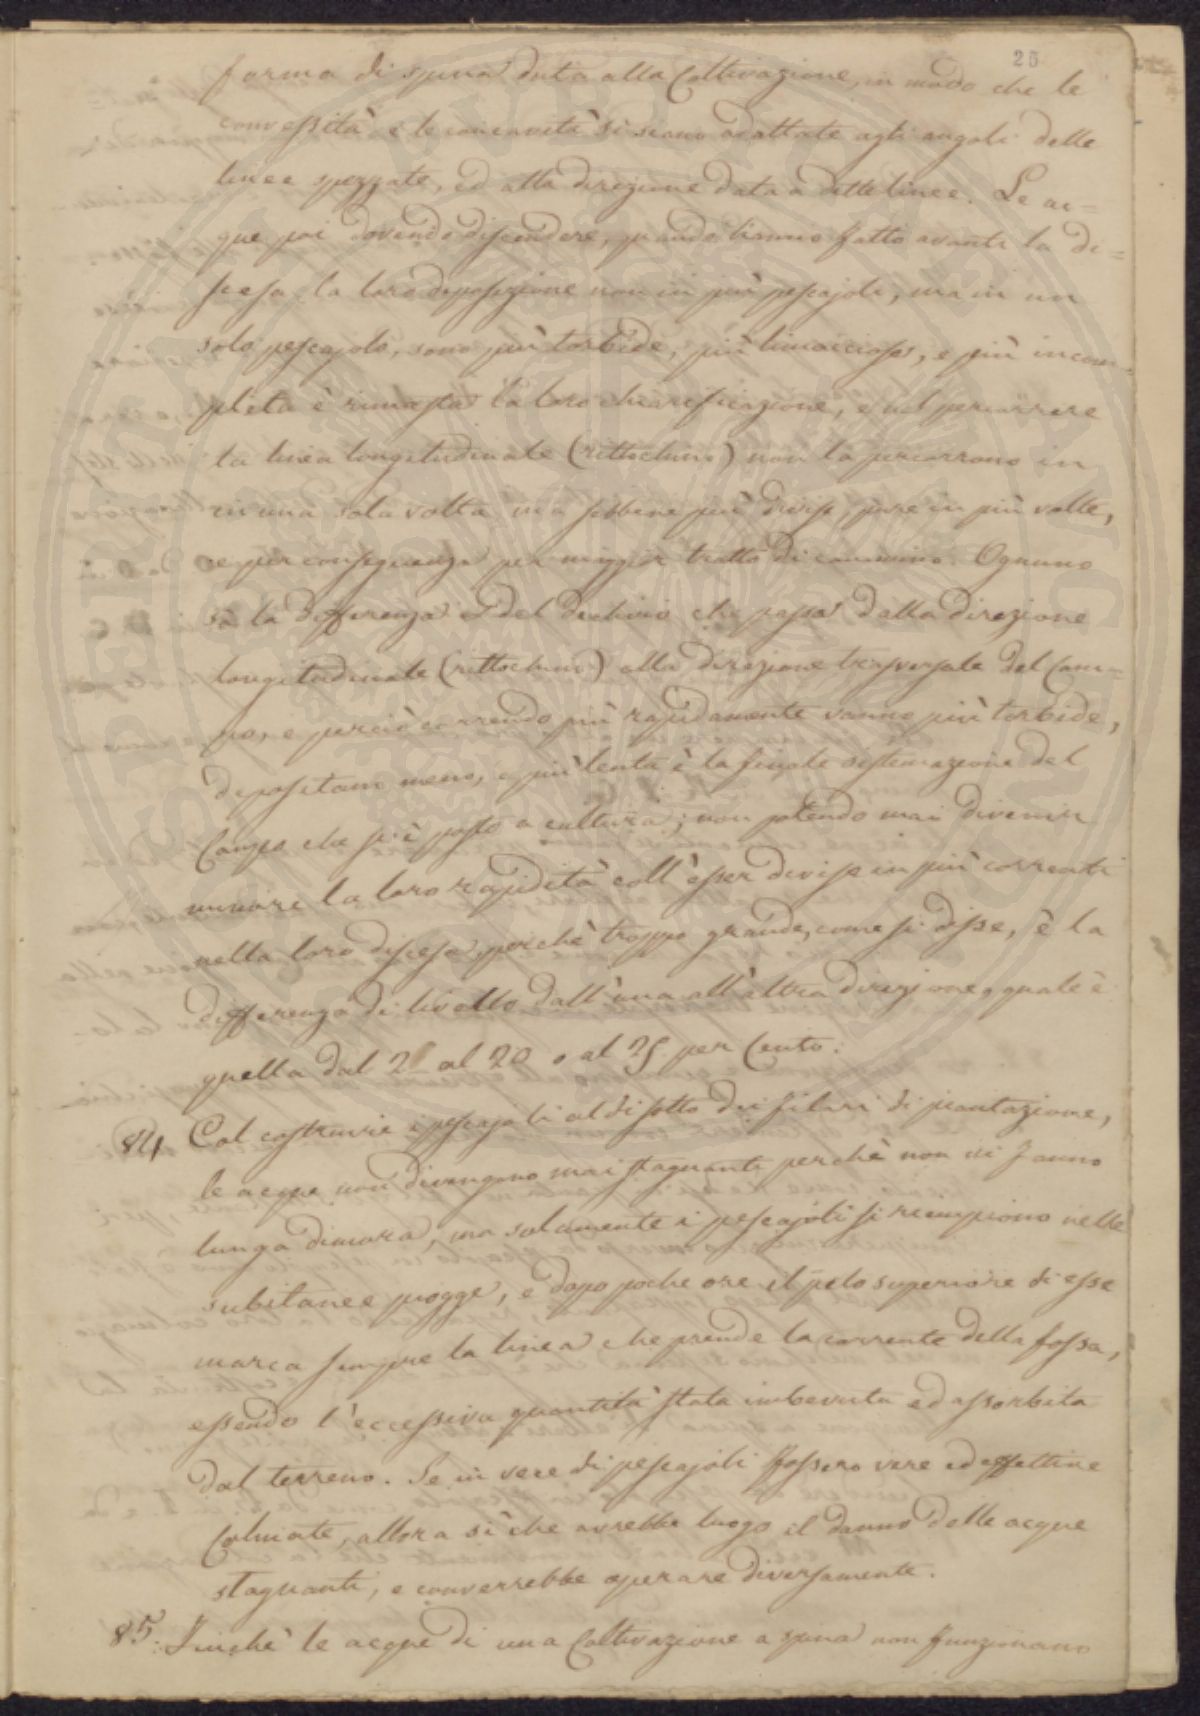 25
forma di spina data alla Coltivazione, in modo che le
convessità e le concavità si siano adattate agli angoli delle
linee spezzate, ed alla direzione data a dette linee. Le ac=
que poi dovendo discendere, quando hanno fatto avanti la di=
scesa la loro deposizione non in più pescajoli, ma in un
solo pescajolo, sono più torbide, più limacciose, e più incom=
pleta è rimasta la loro chiarificazione, e nel percorrere
la linea longitudinale (rittochino) non la percorrono in
in una sola volta ma sibbene più divise, pure in più volte,
e per conseguenza per maggior tratto di cammino. Ognuno
sà la differenza del declivio che passa dalla direzione
longitudinale (rittochino) alla direzione trasversale del Cam=
po, e perciò correndo più rapidamente vanno più torbide,
depositano meno, e più lenta è la finale sistemazione del
Campo che si è posto a cultura; non potendo mai divenir
minore la loro rapidità coll'esser divise in più correnti
nella loro discesa, perchè troppo grande, come si disse, è la
differenza di livello dall'una all'altra direzione, quale è
quella dal 2 al 20 o al 25 per Cento.
84 Col costruire i pescajoli al di sotto dei filari di piantazione,
le acque non divengono mai stagnanti perchè non vi fanno
lunga dimora, ma solamente i pescajoli si riempiono nelle
subitanee piogge, e dopo poche ore il pelo superiore di esse
marca sempre la linea che prende la corrente della fossa,
essendo l'eccessiva quantità stata imbevuta ed assorbita
dal terreno. Se in vece di pescajoli fossero vere ed effettive
Colmate, allora sì che avrebbe luogo il danno delle acque
stagnanti, e converrebbe operare diversamente.
85. Finchè le acque di una Coltivazione a spina non funzionano